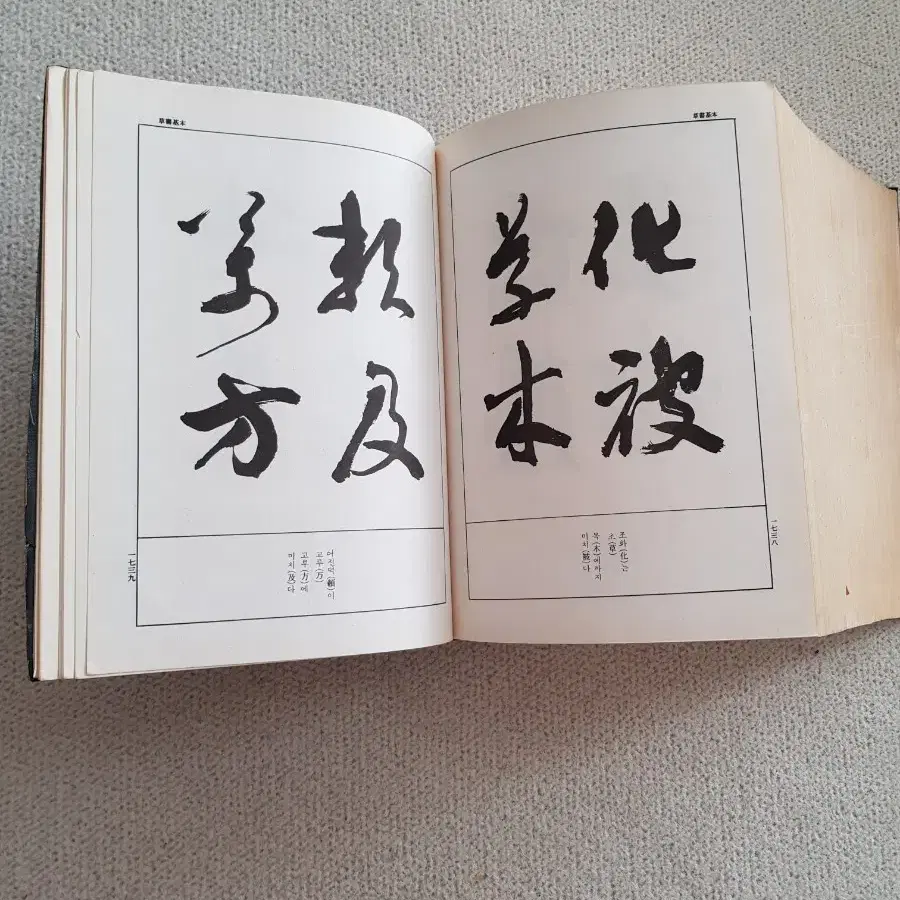 草書基本
化被
草木
조화(化)는
초(草)
목(木)에까지
미치(被)다
一七三八
草書基本
賴及
萬方
어진덕(賴)이
고루(万)
고루(方)에
미치(及)다
一七三九